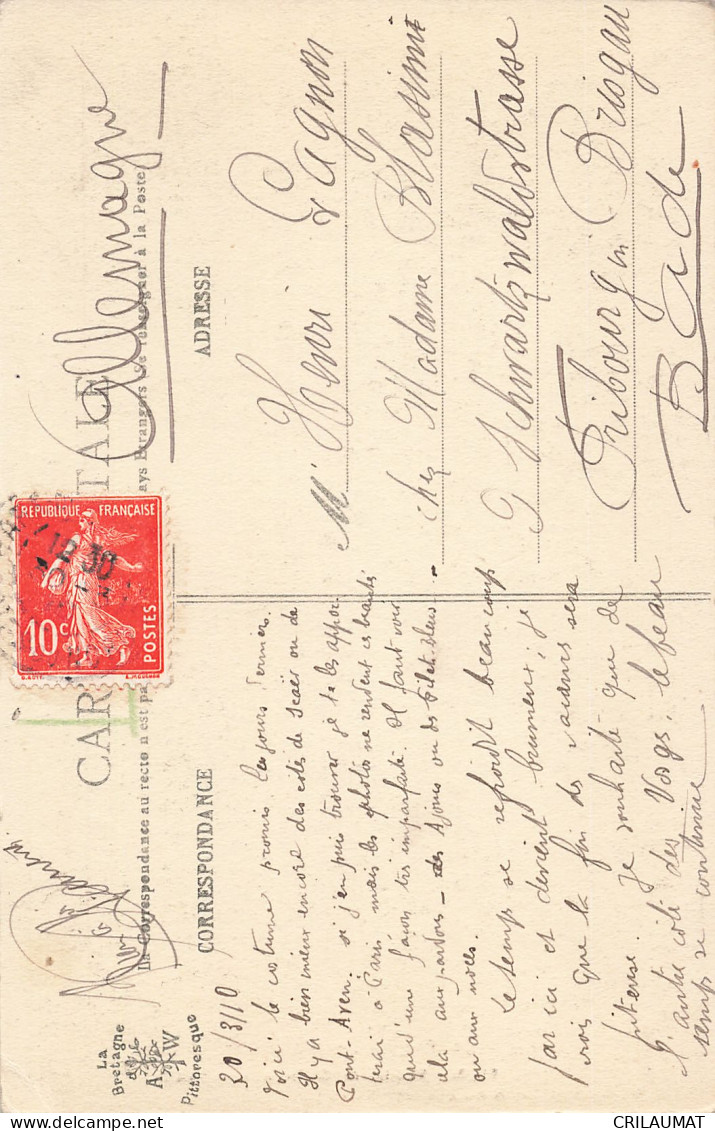 La
Bretagne
A W
Pittoresque
CARTE POSTALE
La Correspondance au recto n'est pas
ays Etrangers (Se renseigner à la Poste)
CORRESPONDANCE
ADRESSE
REPUBLIQUE FRANÇAISE
10c
POSTES
Allemagne
Mr Henri Gagnon
chez Madame Blasimi
9 Schwartzwaldstrasse
Fribourg in Brisgau
Bade
20/3/10
Voici le costume promis les jours derniers.
Il y a bien mieux encore des cotés de Scaër ou de
Pont-Aven. si j'en puis trouver je te les appor-
terai à Paris mais les photos ne rendent ces beautés
qu'd'une façon très imparfaite. Il faut voir
cela aux pardons - des Ajoncs ou des Filets bleus -
ou aux noces.
Le temps se refroidit beaucoup
par ici et devient brumeux; je
crois que la fin des vacances sera
Je souhaite que de
l'autre coté des Vosges, le beau
temps se continue
CRILAUMAT